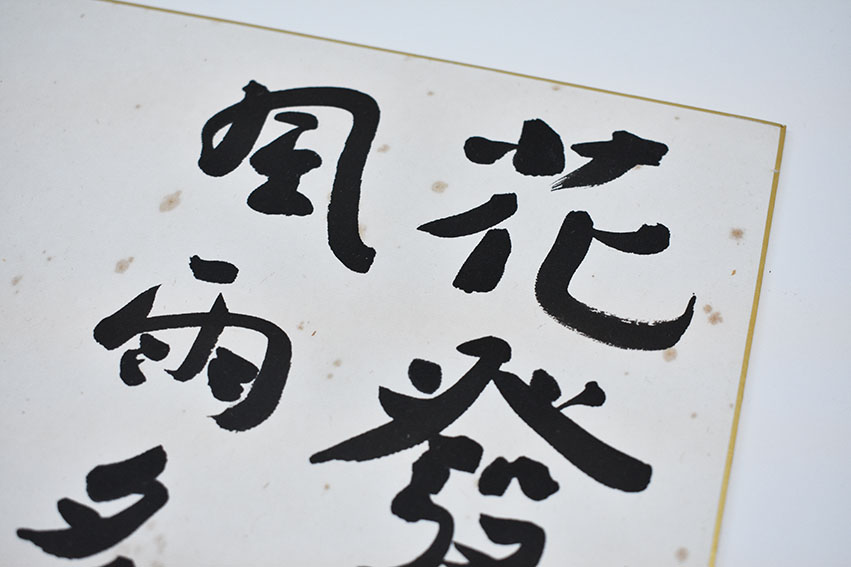 花發
風雨多